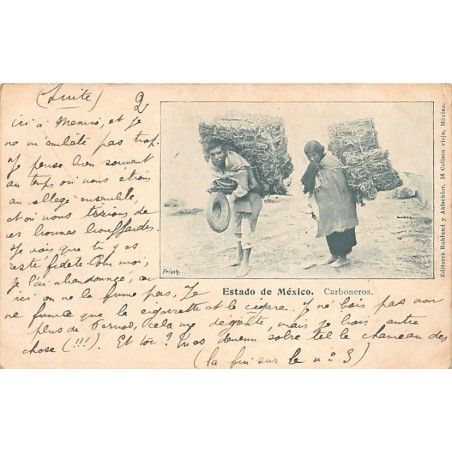 (Suite) 2
ici à Mexico, et je
ne m'embête pas trop.
Je pense bien souvent
au temps où nous étions
au collège ensemble,
et où nous fumions de
ces bonnes bouffardes.
Je vois que tu y es
resté fidèle. Pour moi,
je l'ai abandonnée, car
ici on ne la fume pas. Je
ne fume que la cigarette et le cigare. Je ne bois pas non
plus de Pernod, cela me dégoûte, mais je bois autre
chose (!!!). Et toi? es devenu sobre tel le chameau des
(la fin sur le nº 3)
Estado de México. Carboneros.
Editores Ruhland y Ahlschier, 16 Coliseo viejo, México.